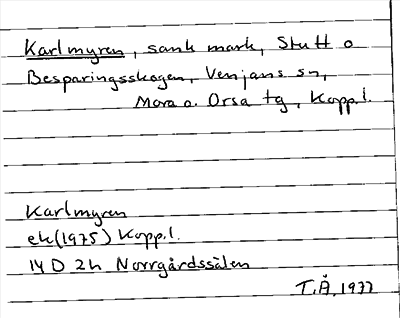 Karlmyren, sank mark, Stutt o
Besparingsskogen, Venjans sn,
Mora o. Orsa tg, Kopp.l.
Karlmyren
ek(1975) Kopp.l.
14 D 2h Norrgårdssälen
T.Å. 1977